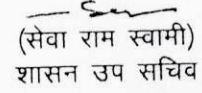 (सेवा राम स्वामी)
शासन उप सचिव